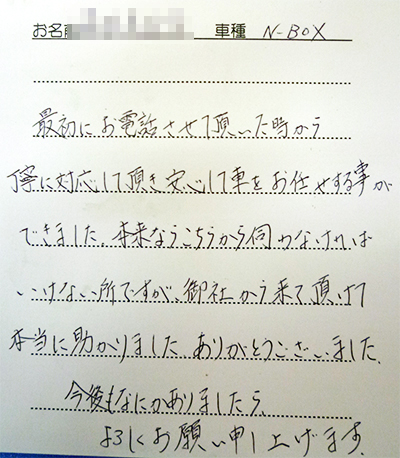 お名前 車種 N-BOX
最初にお電話させて頂いた時から
丁寧に対応して頂き安心して車をお任せする事が
できました。本来ならこちらから伺わなければ
いけない所ですが、御社から来て頂けて
本当に助かりました。ありがとうございました。
今後もなにかありましたら、
よろしくお願い申し上げます。